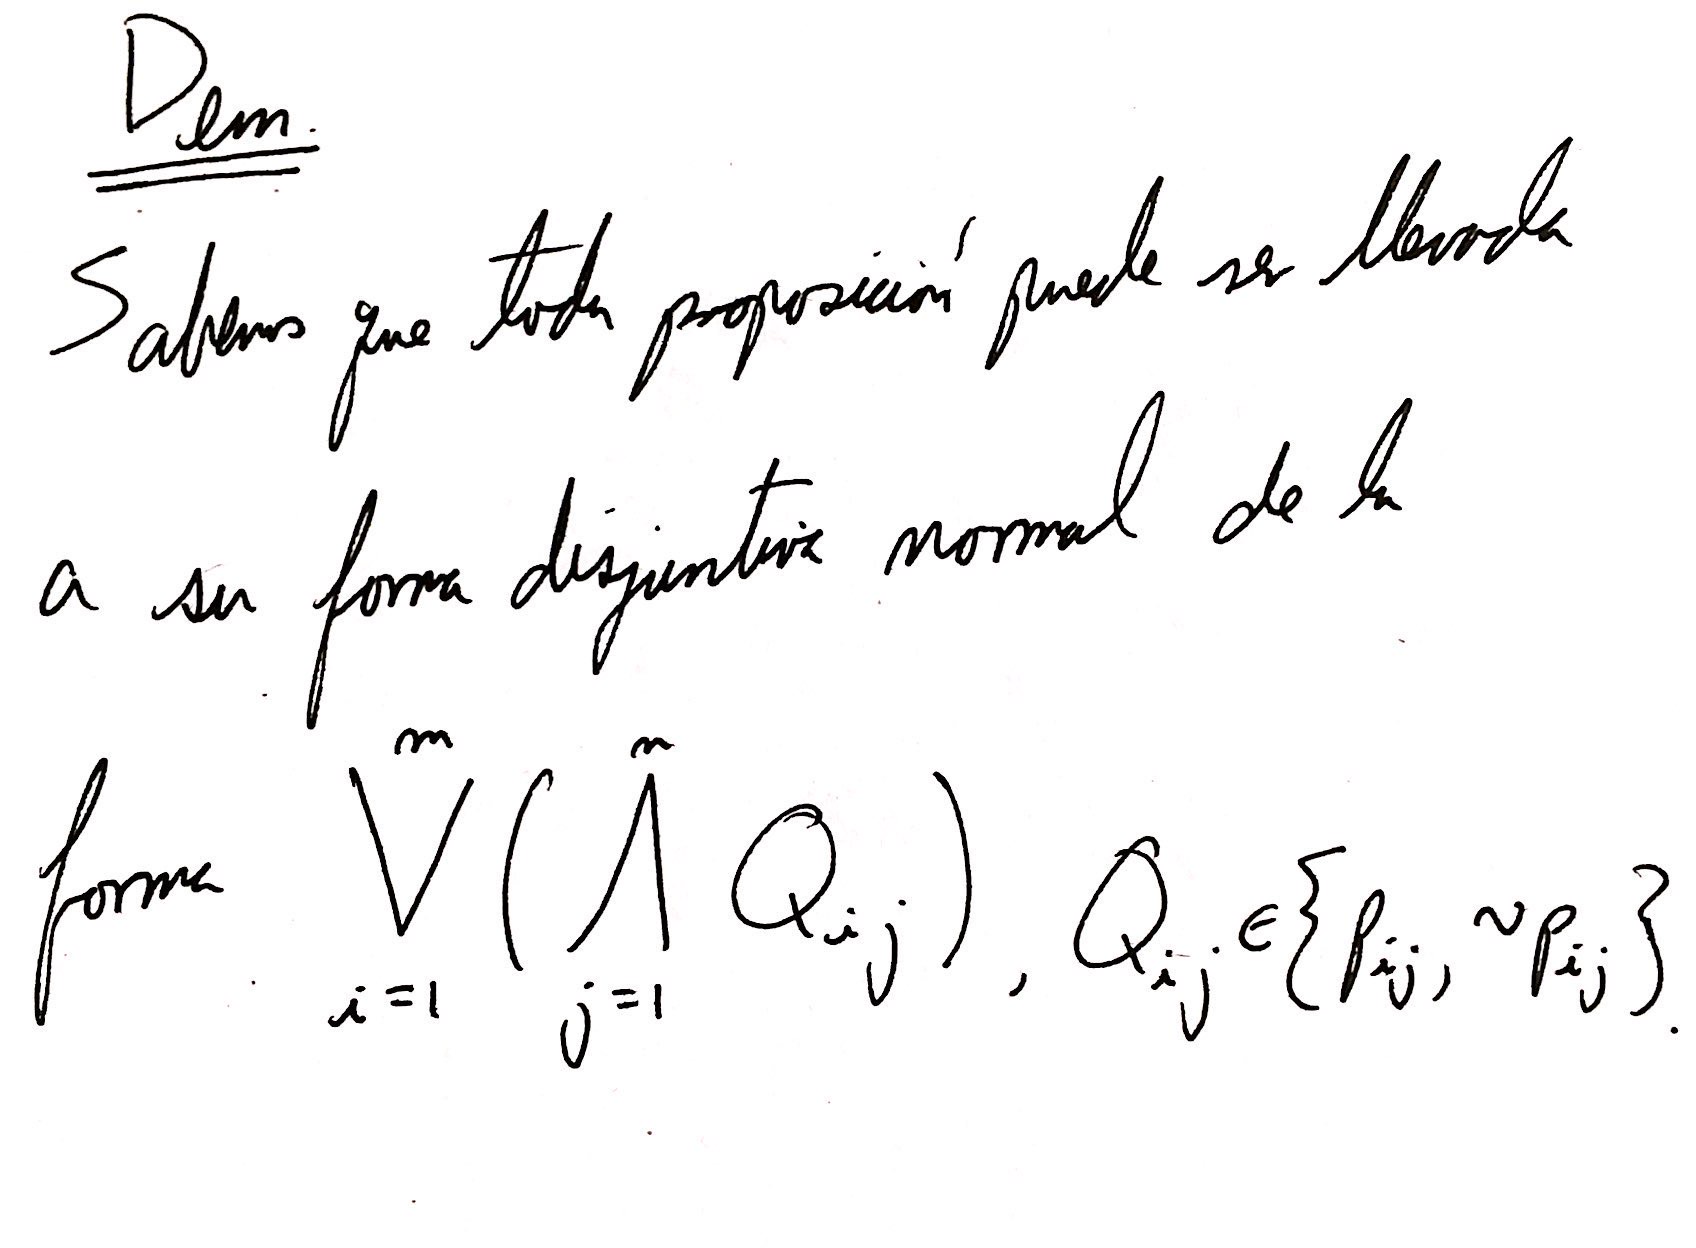 Dem.
Sabemos que toda proposición puede ser llevada
a su forma disjuntiva normal de la
forma $\bigvee_{i=1}^{m} \left( \bigwedge_{j=1}^{n} Q_{ij} \right)$, $Q_{ij} \in \{ p_{ij}, \sim p_{ij} \}$.